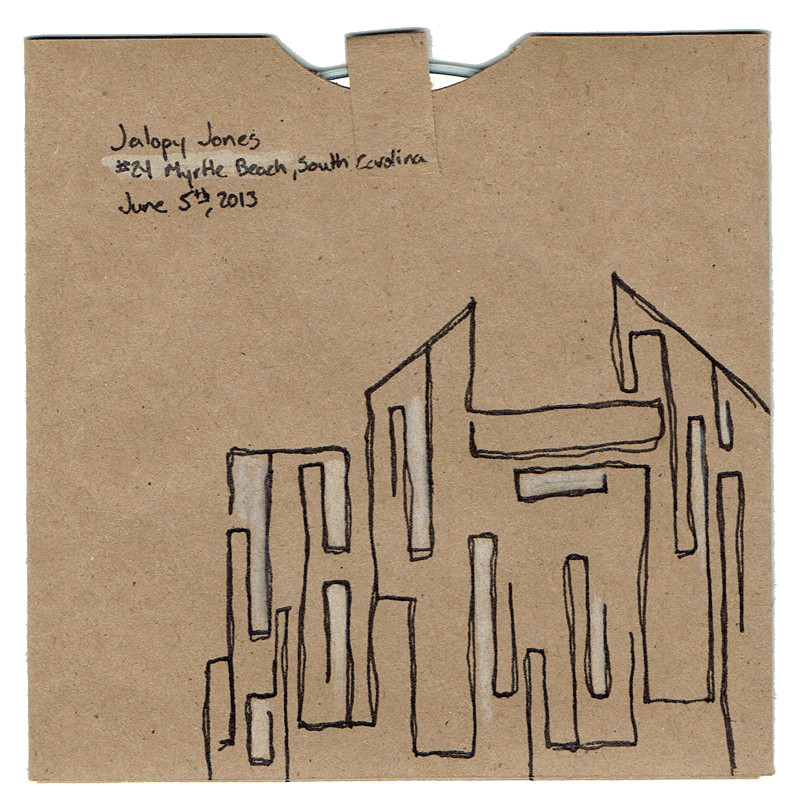 Jalopy Jones
#24 Myrtle Beach, South Carolina
June 5th, 2013